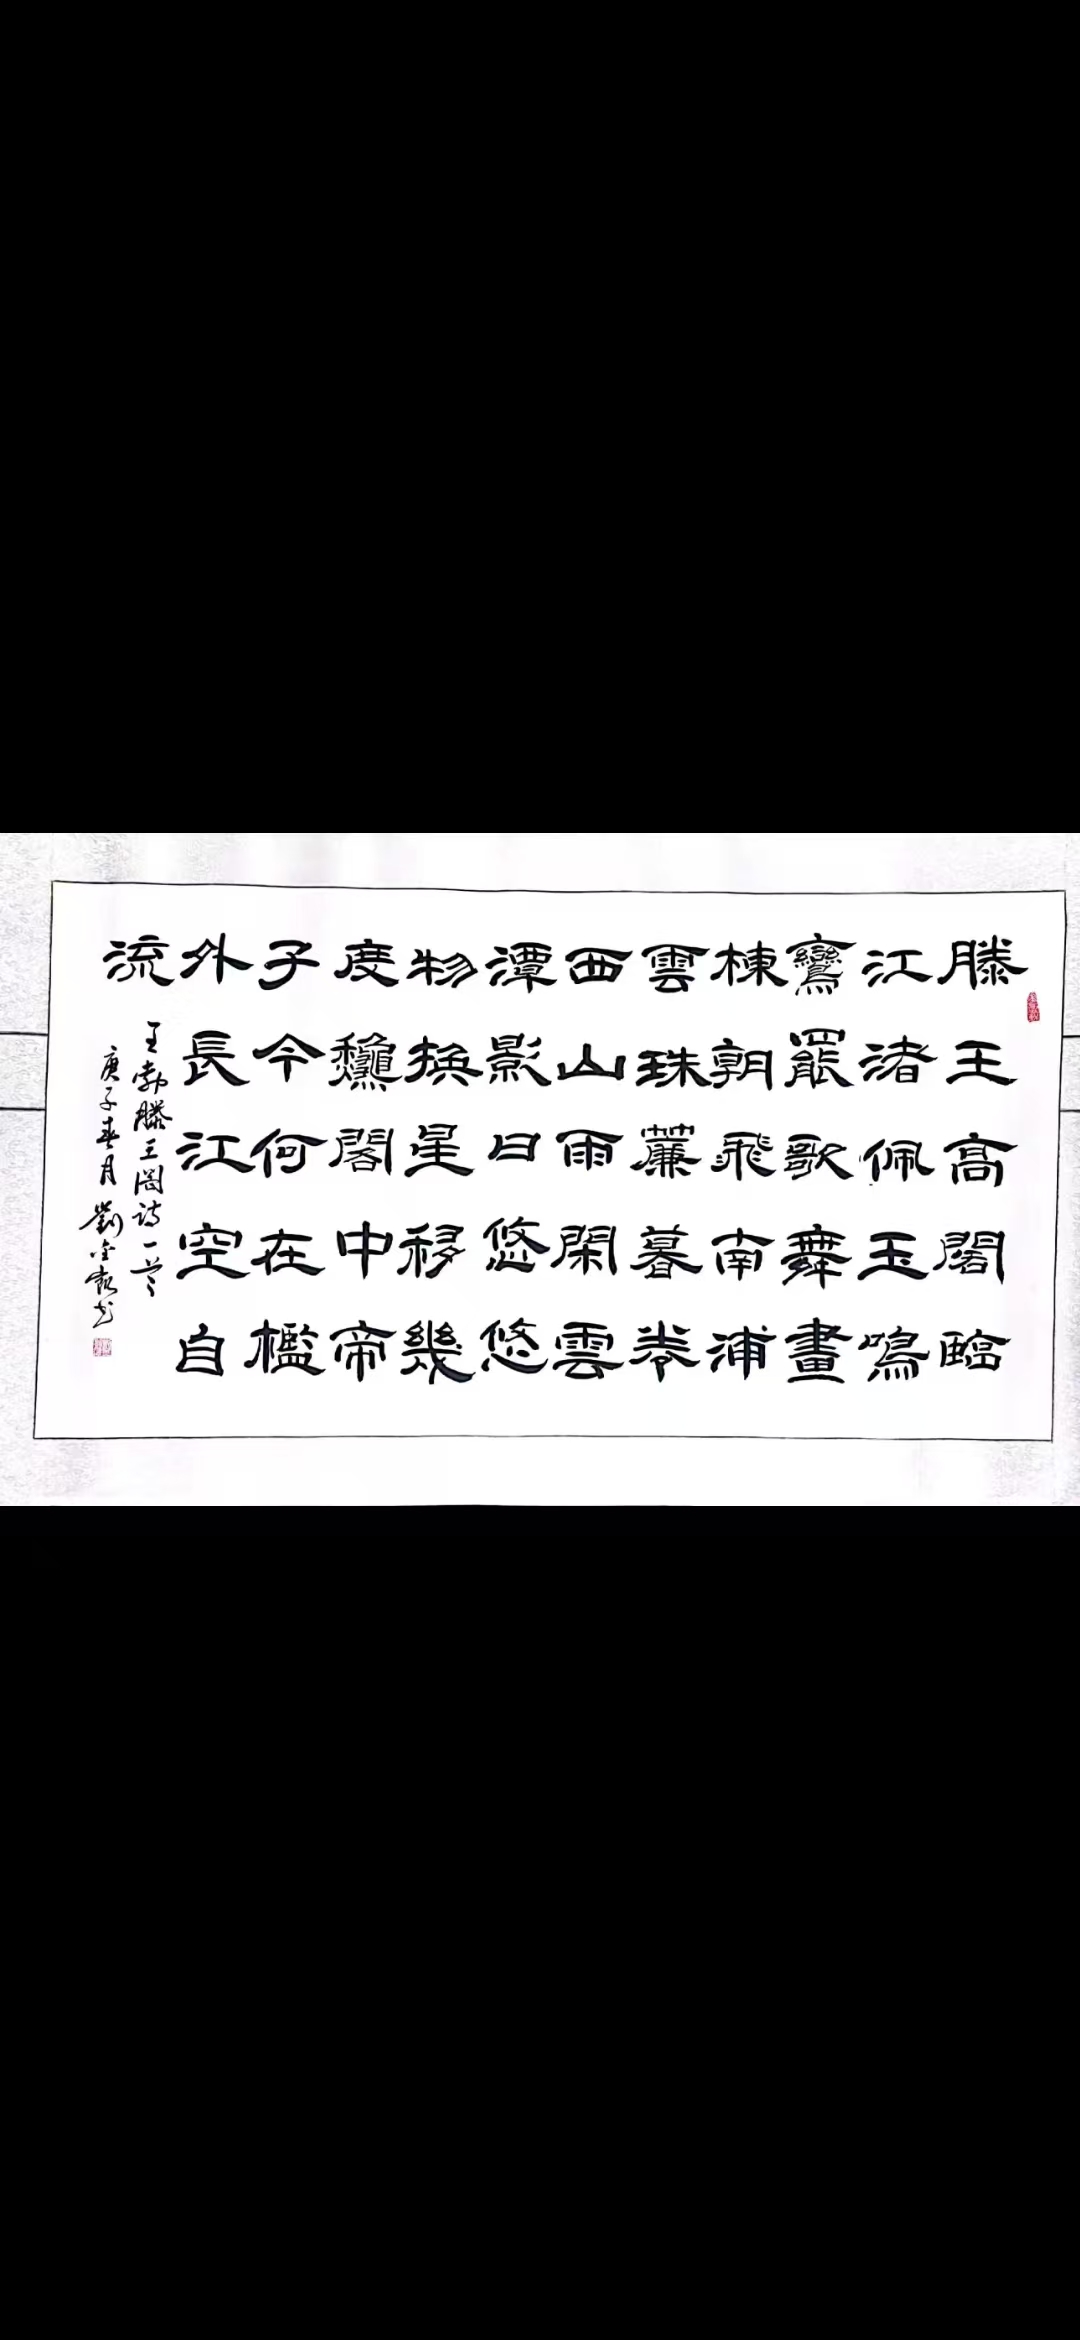 滕王高閣臨
江渚佩玉鳴
鸞罷歌舞畫
棟朝飛南浦
雲珠簾暮卷
西山雨閑雲
潭影日悠悠
物換星移幾
度龝閣中帝
子今何在檻
外長江空自
流
王勃滕王閣詩一首
庚子春月劉金书